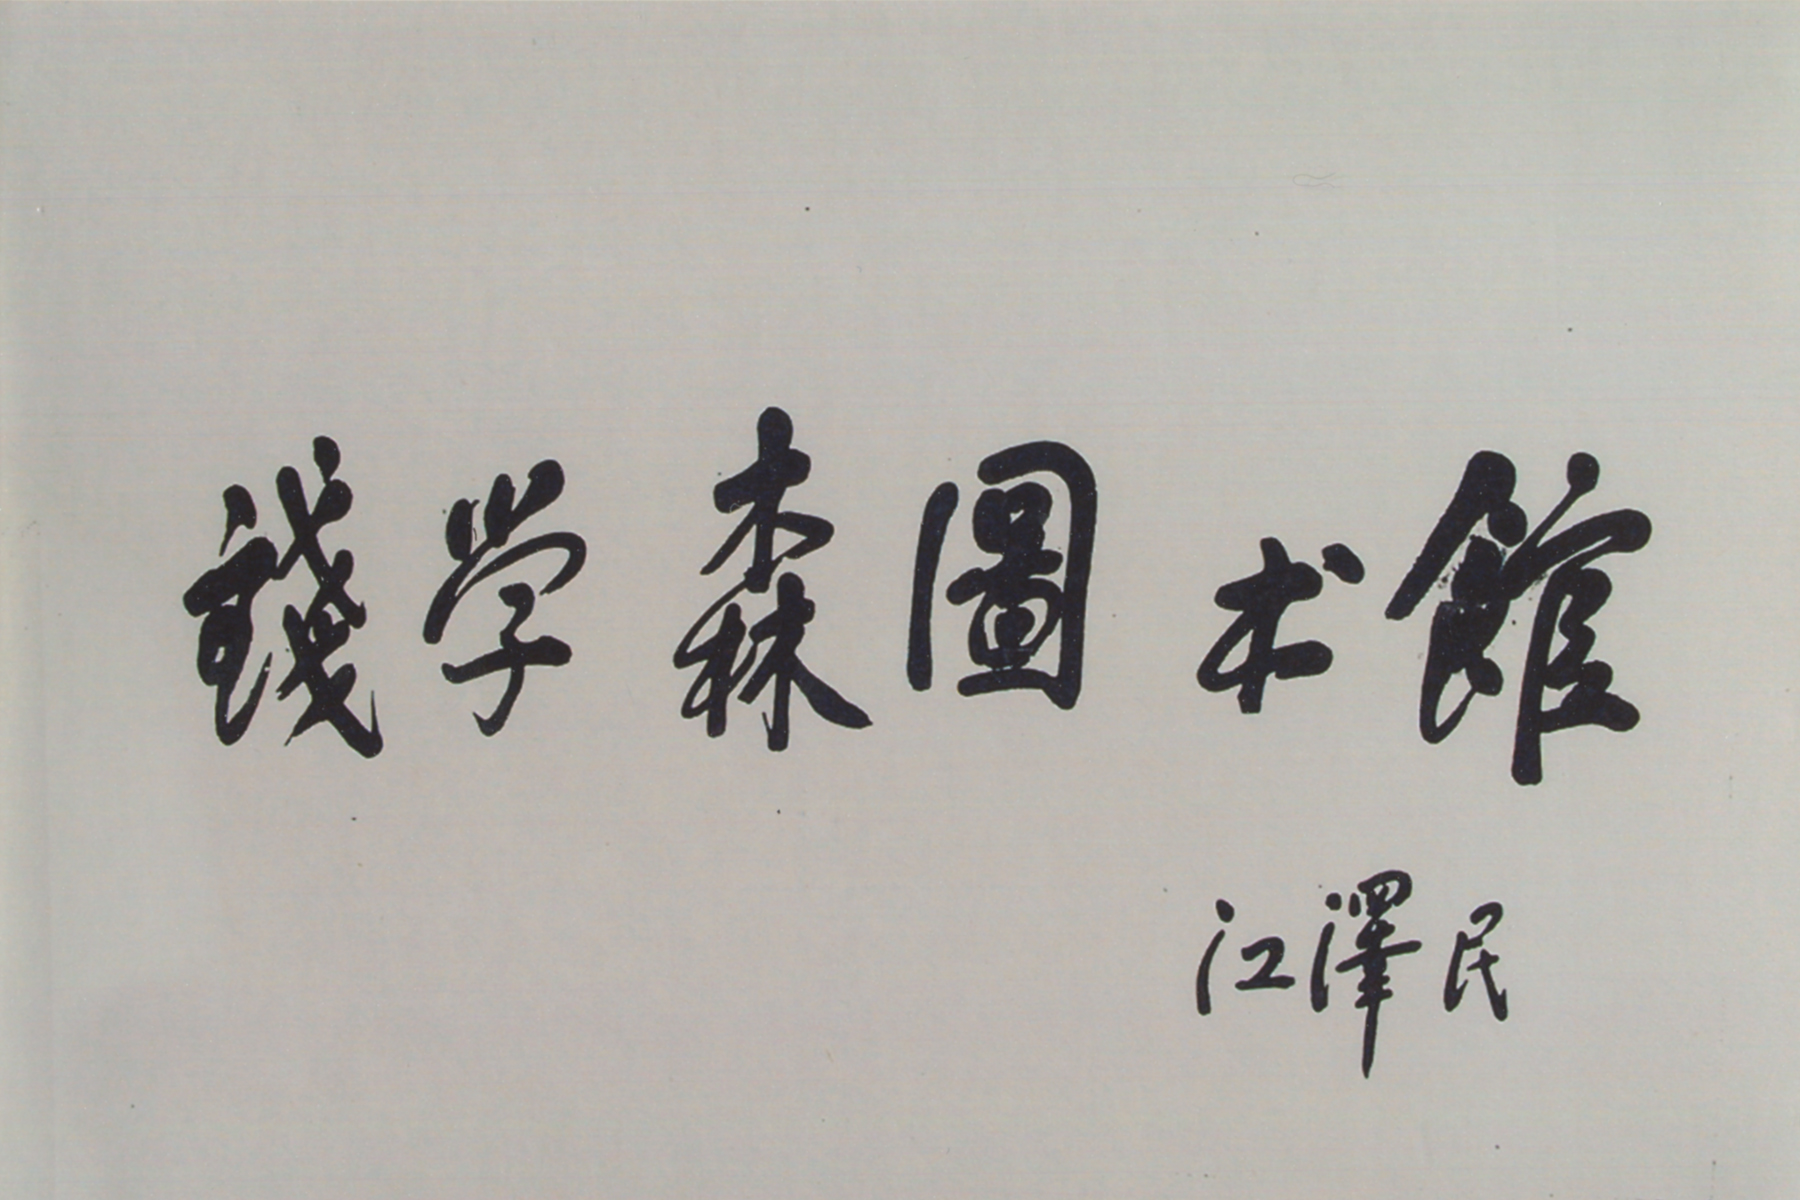 錢学森圖书館
江澤民